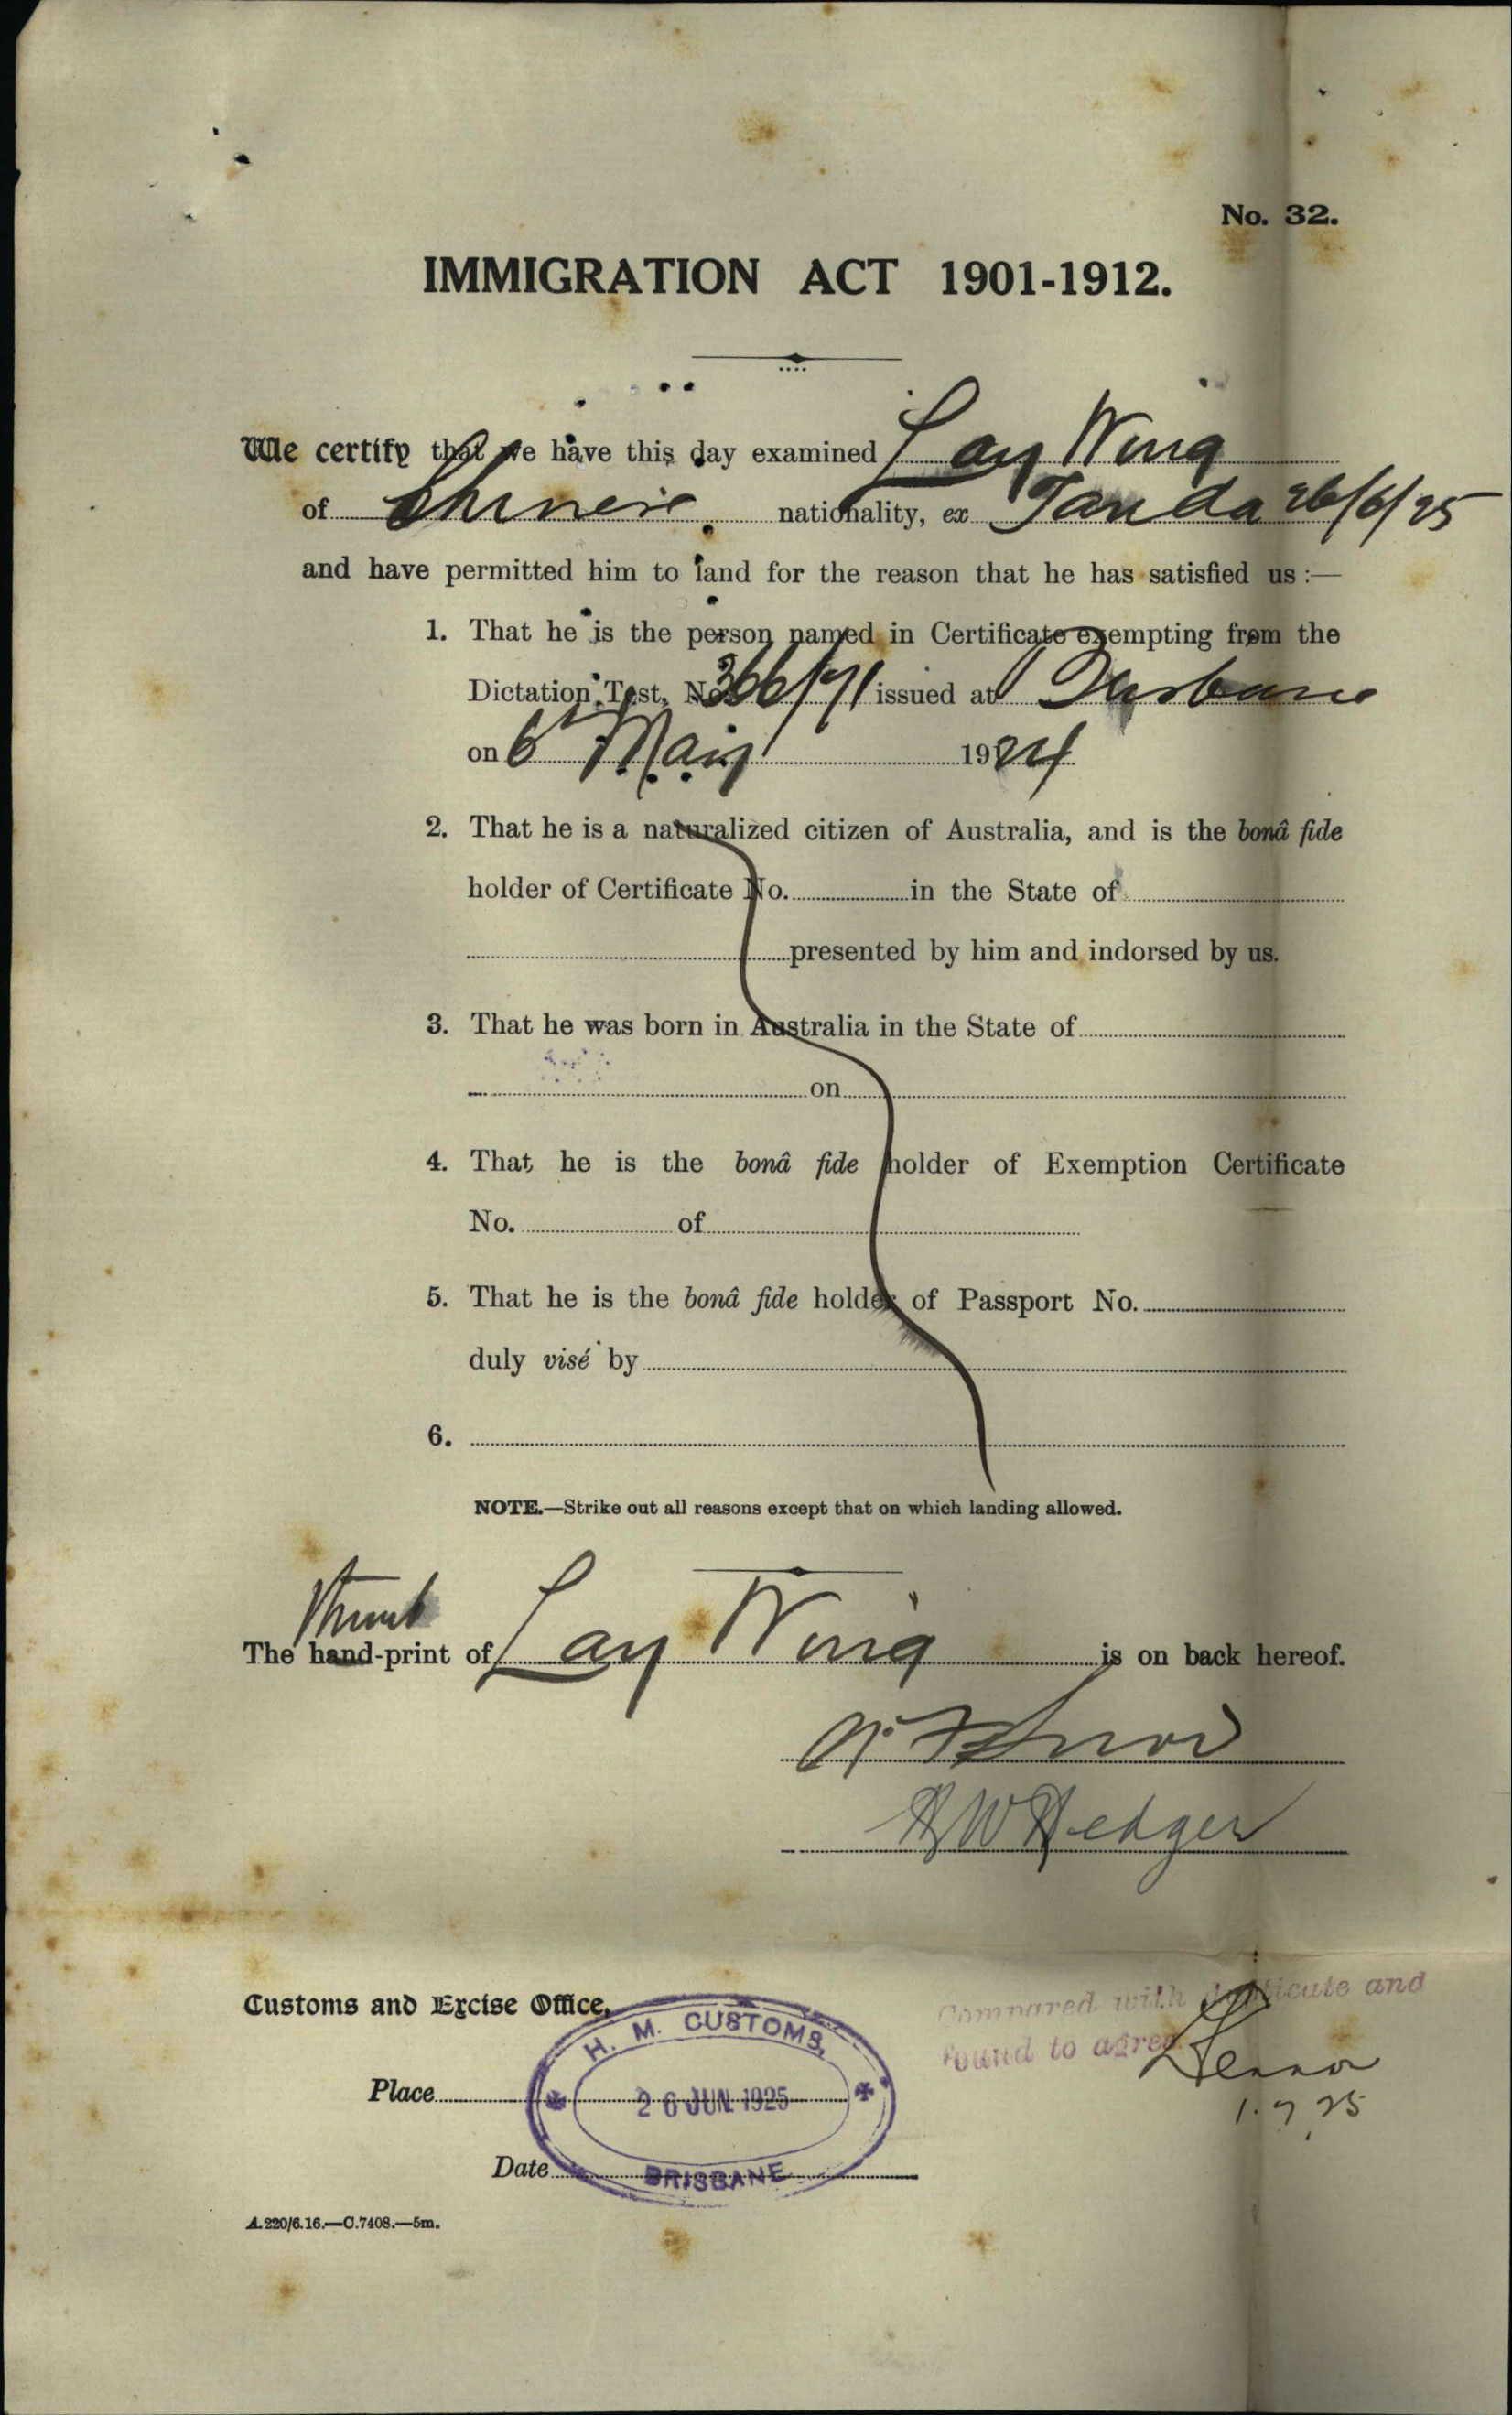 No. 32.
IMMIGRATION ACT 1901-1912.
We certify that we have this day examined Lay Wing
of Chinese nationality, ex Tanda 26/6/25
and have permitted him to land for the reason that he has satisfied us :—
1. That he is the person named in Certificate exempting from the
Dictation Test, No. 366/71 issued at Brisbane
on 6th May 1924
2. That he is a naturalized citizen of Australia, and is the bonâ fide
holder of Certificate No. in the State of
presented by him and indorsed by us.
3. That he was born in Australia in the State of
on
4. That he is the bonâ fide holder of Exemption Certificate
No. of
5. That he is the bonâ fide holder of Passport No.
duly visé by
6.
NOTE.—Strike out all reasons except that on which landing allowed.
Thumb
The hand-print of Lay Wing is on back hereof.
Hedger
Customs and Excise Office,
Compared with duplicate and
found to agree
1.7.25
Place
Date
H. M. CUSTOMS,
26 JUN 1925
BRISBANE
A.220/6.16.—C.7408.—5m.